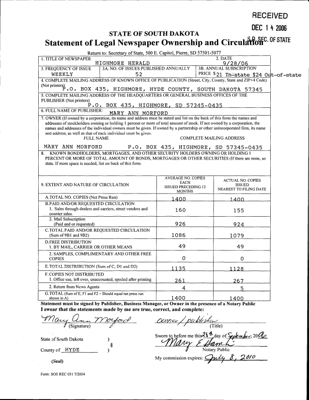 RECEIVED
DEC 14 2006
S.D. SEC. OF STATE
STATE OF SOUTH DAKOTA
Statement of Legal Newspaper Ownership and Circulation
Return to: Secretary of State, 500 E. Capitol, Pierre, SD 57501-5077
1. TITLE OF NEWSPAPER
HIGHMORE HERALD
2. DATE
9/28/06
3. FREQUENCY OF ISSUE
WEEKLY
3A. NO. OF ISSUES PUBLISHED ANNUALLY
52
3B. ANNUAL SUBSCRIPTION
PRICE $21 In-state $24 Out-of-state
4. COMPLETE MAILING ADDRESS OF KNOWN OFFICE OF PUBLICATION (Street, City, County, State and ZIP+4 Code)
(Not printers)
P.O. BOX 435, HIGHMORE, HYDE COUNTY, SOUTH DAKOTA 57345
5. COMPLETE MAILING ADDRESS OF THE HEADQUARTERS OR GENERAL BUSINESS OFFICES OF THE
PUBLISHER (Not printer)
P.O. BOX 435, HIGHMORE, SD 57345-0435
6. FULL NAME OF PUBLISHER:
MARY ANN MORFORD
7. OWNER (If owned by a corporation, its name and address must be stated and list on the back of this form the names and
addresses of stockholders owning or holding 1 percent or more of total amount of stock. If not owned by a corporation, the
names and addresses of the individual owners must be given. If owned by a partnership or other unincorporated firm, its name
and address, as well as that of each individual must be given.
FULL NAME
COMPLETE MAILING ADDRESS
MARY ANN MORFORD
P.O. BOX 435, HIGHMORE, SD 57345-0435
8. KNOWN BONDHOLDERS, MORTGAGEES, AND OTHER SECURITY HOLDERS OWNING OR HOLDING 1
PERCENT OR MORE OF TOTAL AMOUNT OF BONDS, MORTGAGES OR OTHER SECURITIES (If there are none, so
state. If more space is needed, list on back of this form).
9. EXTENT AND NATURE OF CIRCULATION
AVERAGE NO. COPIES
EACH
ISSUED PRECEDING 12
MONTHS
ACTUAL NO. COPIES
ISSUED
NEAREST TO FILING DATE
A. TOTAL NO. COPIES (Net Press Run)
1400
1400
B. PAID AND/OR REQUESTED CIRCULATION
1. Sales through dealers and carriers, street vendors and
counter sales.
160
155
2. Mail Subscription
(Paid and or requested)
926
924
C. TOTAL PAID AND/OR REQUESTED CIRCULATION
(Sum of 9B1 and 9B2)
1086
1079
D. FREE DISTRIBUTION
1. BY MAIL, CARRIER OR OTHER MEANS
49
49
2. SAMPLES, COMPLIMENTARY AND OTHER FREE
COPIES
0
0
E. TOTAL DISTRIBUTION (Sum of C, D1 and D2)
1135
1128
F. COPIES NOT DISTRIBUTED
1. Office use, left over, unaccounted, spoiled after printing
261
267
2. Return from News Agents
4
5
G. TOTAL (Sum of E, F1 and F2 - Should equal net press run
shown in A)
1400
1400
Statement must be signed by Publisher, Business Manager, or Owner in the presence of a Notary Public
I swear that the statements made by me are true, correct, and complete:
Mary Ann Morford
(Signature)
owner/publisher
(Title)
State of South Dakota )
County of HYDE )
(Seal)
Sworn to before me this day of September, 2006
Notary Public
My commission expires: July 8, 2010